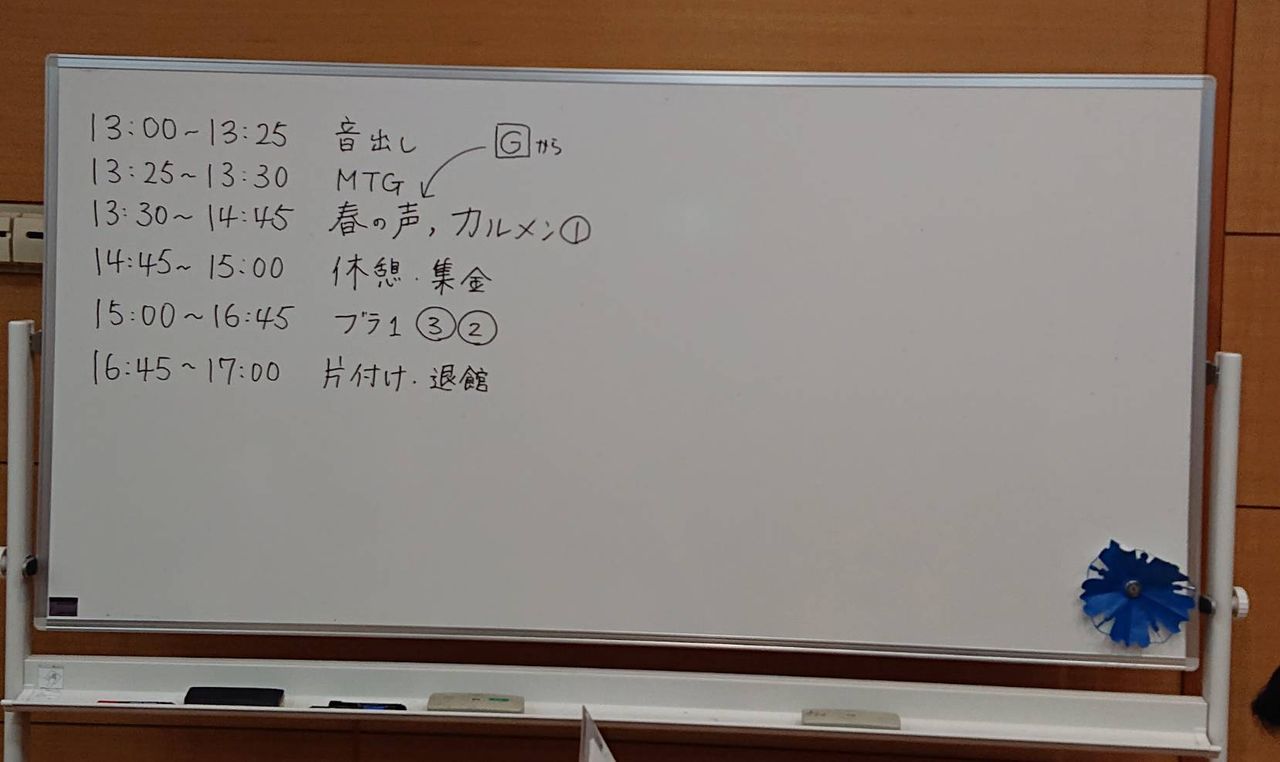 13:00~13:25 音出し Gから
13:25~13:30 MTG
13:30~14:45 春の声, カルメン①
14:45~15:00 休憩・集金
15:00~16:45 ブラ1 ③②
16:45~17:00 片付け・退館